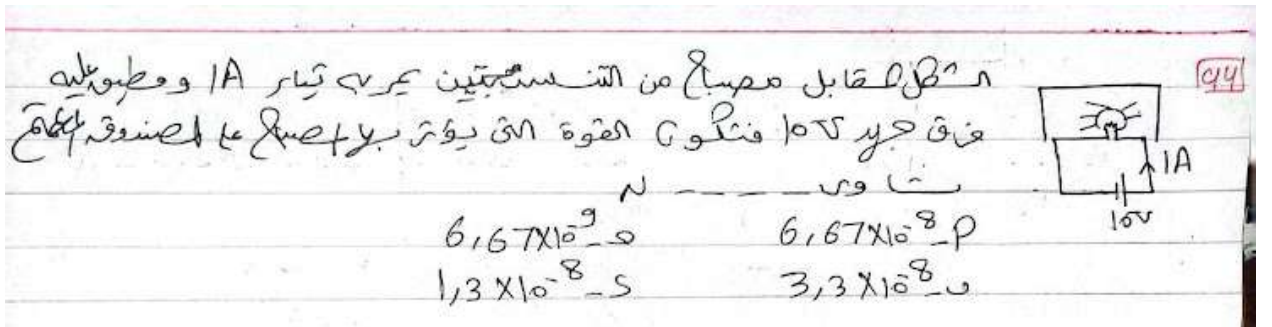 99
الشكل المقابل مصباح من التنجستين يمر به تيار 1A ومطبق عليه
فرق جهد 10V فتكون القوة التى يؤثر بها المصباح على الصندوق
تساوى ---- N
أ- 6,67X10⁻⁸ ج- 6,67X10⁻⁹
ب- 3,3X10⁻⁸ د- 1,3X10⁻⁸
1A
10V